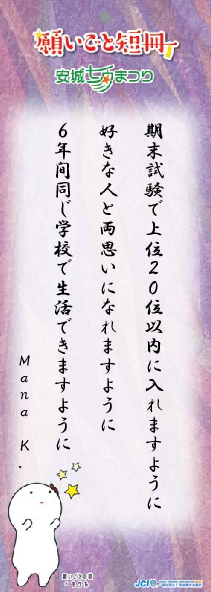 願いごと短冊
安城七夕まつり
期末試験で上位２０位以内に入れますように
好きな人と両思いになれますように
６年間同じ学校で生活できますように
Mana K.
JCI